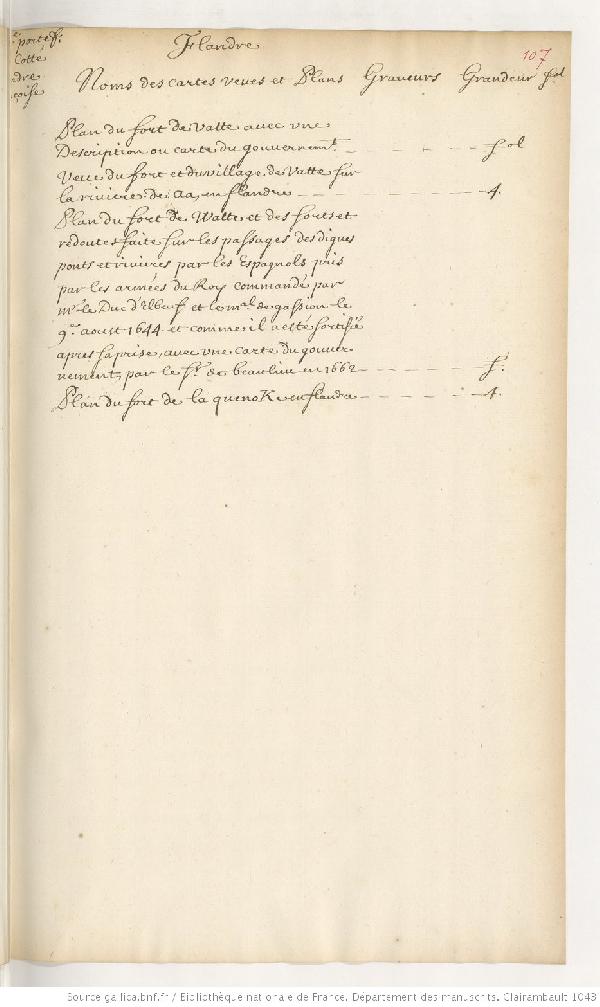 portef:
Cotté
Flandre
107
Noms des cartes veues et Plans Graveurs Grandeur fol
Plan du fort de Vatte avec vne
Description ou carte du gouvernemt. fol
Veue du fort et du village de Vatte sur
la riviere de aa, en flandre 4.
Plan du fort de Watte et des forts et
redoutes faite sur les passages des digues
ponts et rivieres par les Espagnols pris
par les armées du Roy commandé par
mr. le Duc d'Elbeuf et le mal. de gassion le
9e. aoust 1644 et comme il a esté fortifié
apres sa prise, avec vne carte du gouver-
nement, par le Sr. de beaulieu en 1662 f:
Plan du fort de la quenoKe en flandre 4.
Source gallica.bnf.fr / Bibliothèque nationale de France. Département des manuscrits. Clairambault 1043